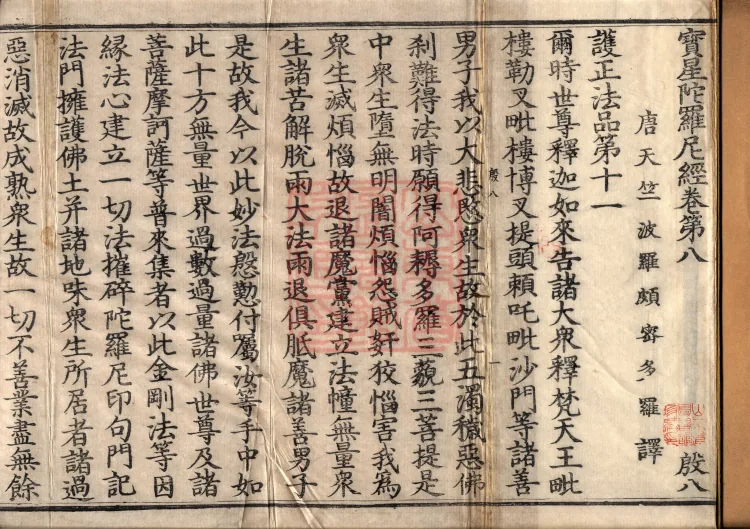 寶星陀羅尼經卷第八
殷八
唐天竺波羅頗蜜多羅譯
護正法品第十一
爾時世尊釋迦如來告諸大衆釋梵天王毗
樓勒叉毗樓博叉提頭賴吒毗沙門等諸善
殷八
一
男子我以大悲愍衆生故於此五濁穢惡佛
刹難得法時願得阿耨多羅三藐三菩提是
中衆生墮無明闇煩惱怨賊奸狡惱害我爲
衆生滅煩惱故退諸魔黨建立法幢無量衆
生諸苦解脫雨大法雨退俱胝魔諸善男子
是故我今以此妙法慇懃付屬汝等手中如
此十方無量世界過數過量諸佛世尊及諸
菩薩摩訶薩等普來集者以此金剛法等因
緣法心建立一切法摧碎陀羅尼印句門記
法門擁護佛土并諸地味衆生所居者諸過
惡消滅故成熟衆生故一切不善業盡無餘